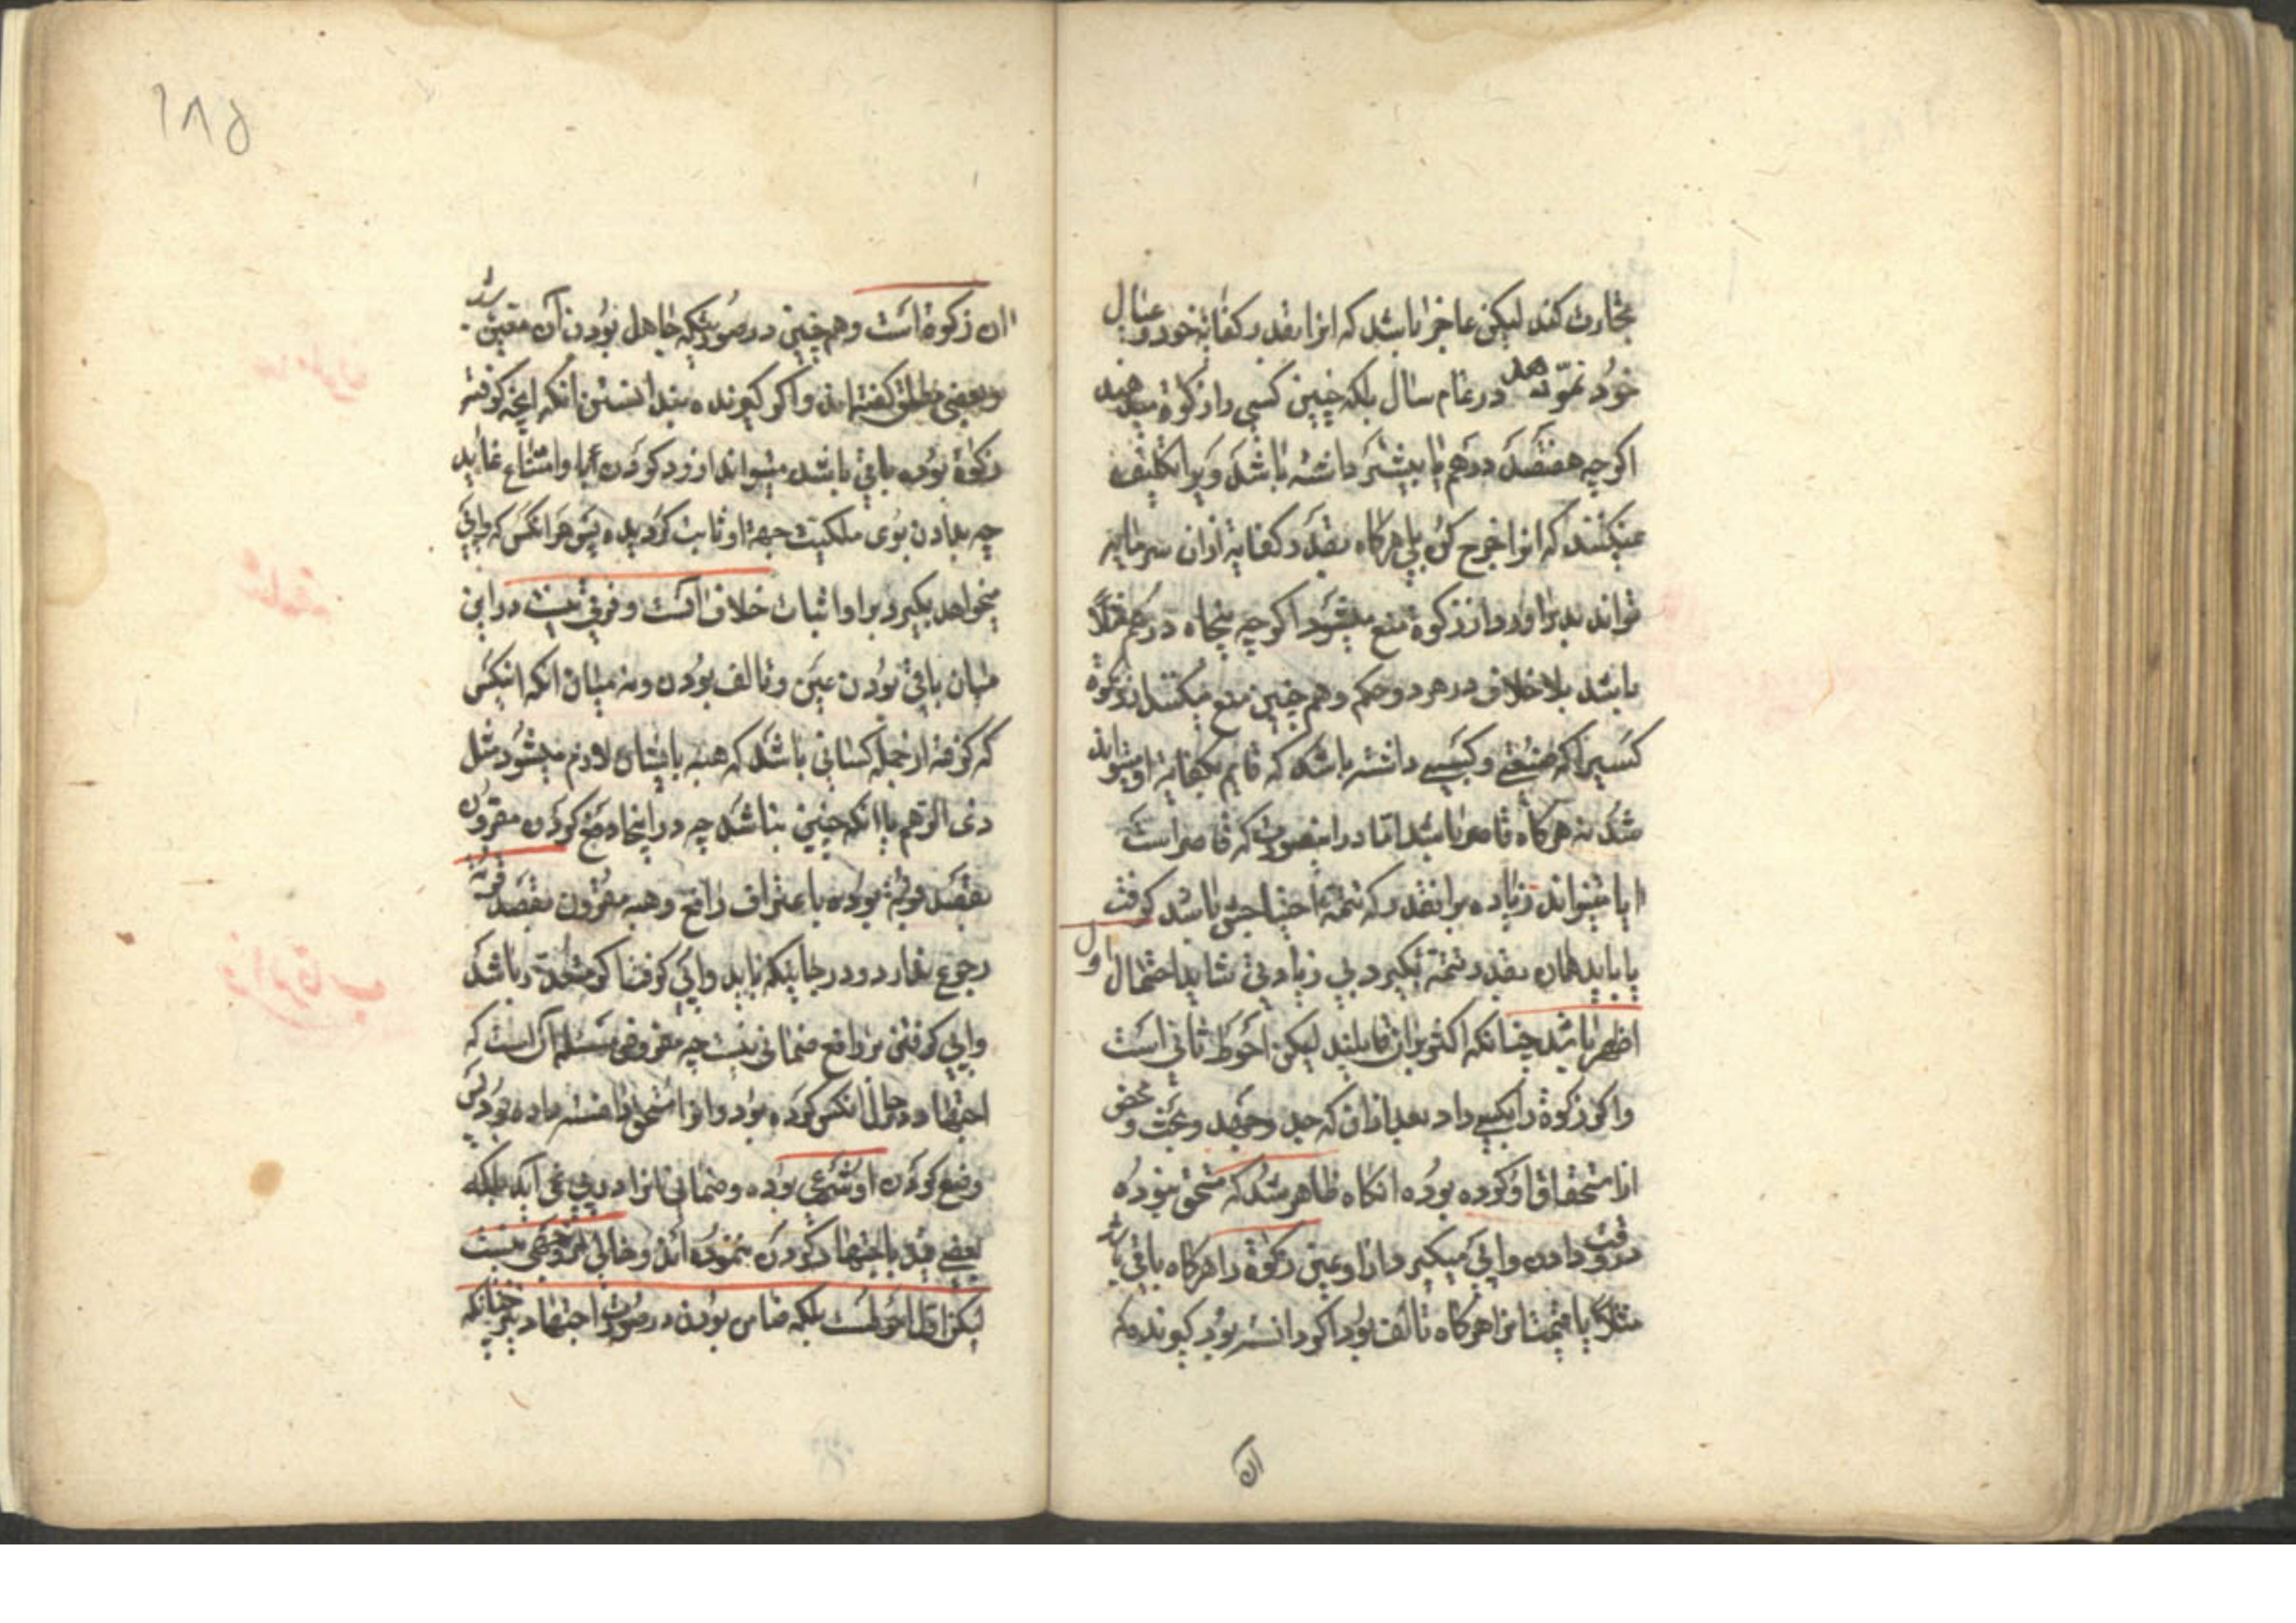 تجارت کند لیکن عاجز باشد که از انقدر کفایه خود و عیال
خود در تمام سال بلکه چنین کسی را زکوة میدهند
اگرچه هفتصد درهم یا بیشتر داشته باشد و برا تکلیف
نمیکنند که انرا خرج کن بلی هرکاه بقدر کفایه ازان سرمایه
تواند بدر اورد از زکوة منع میشود اگرچه پنجاه درهم مثلا
باشد بلا خلاف در هر دو حکم و هم چنین منع میکنند از زکوة
کسیرا که صنعتی و کسبی داشته باشد که قایم بکفایة او تواند
شد نه هرکاه قاصر باشد اما در اینصورت که قاصر است
ایا میتواند زیاده بر انقدر که تتمه احتیاجش باشد کرفت
یا باید همان بقدر تتمه بکیرد بی زیادتی شاید احتمال اول
اظهر باشد چنانکه اکثر بران قایلند لیکن احوط ثانی است
و اکر زکوة را بکسی داد بعد ازان که جد و جهد و بحث و فحص
از استحقاق او کرده بوده انکاه ظاهر شد که مستحق نبوده
در وقت دادن واپس میکیرد از او عین زکوة را هرکاه باقی باشد
مثلا یا قیمت انرا هرکاه تالف بود اکر دانسته بود کیرنده که
ان
۱۸۵
ان زکوة است و هم چنین در صورتیکه جاهل بودن آن متعین
و بعضی مطلق کفته اند و اکر کیرنده ندانستن انکه انچه کرفته
زکوة بوده باقی باشد میتواند از رد کردن ابا و امتناع نماید
چه بدادن بوی ملکیت جهة او ثابت کردیده پس هر انکس که واپس
میخواهد بکیرد بر او اثبات خلاف است و فرقی نیست در این
میان باقی بودن عین و تالف بودن و نه میان انکه انکس
که کرفته از جمله کسانی باشد که هبه بایشان لازم میشود مثل
ذی الرحم یا انکه چنین نباشد چه در اینجا دفع کردن مقرون
بقصد قربة بوده باعتراف دافع و هبه مقرون بقصد قربة
رجوع ندارد و در جاییکه باید واپس کرفت اکر متعذر باشد
واپس کرفتن بر دافع ضمانی نیست چه مفروض مسئله آن است که
اجتهاد در حال انکس کرده بود و انرا مستحق دانسته داده بود پس
دفع کردن او شرعی بوده و ضمانی انرا در پی نمی آید بلکه
بعضی قید باجتهاد کردن ننموده اند و خالی از وجهی نیست
لیکن اول احوط است بلکه ضامن بودن در صورت اجتهاد نیز چنانکه